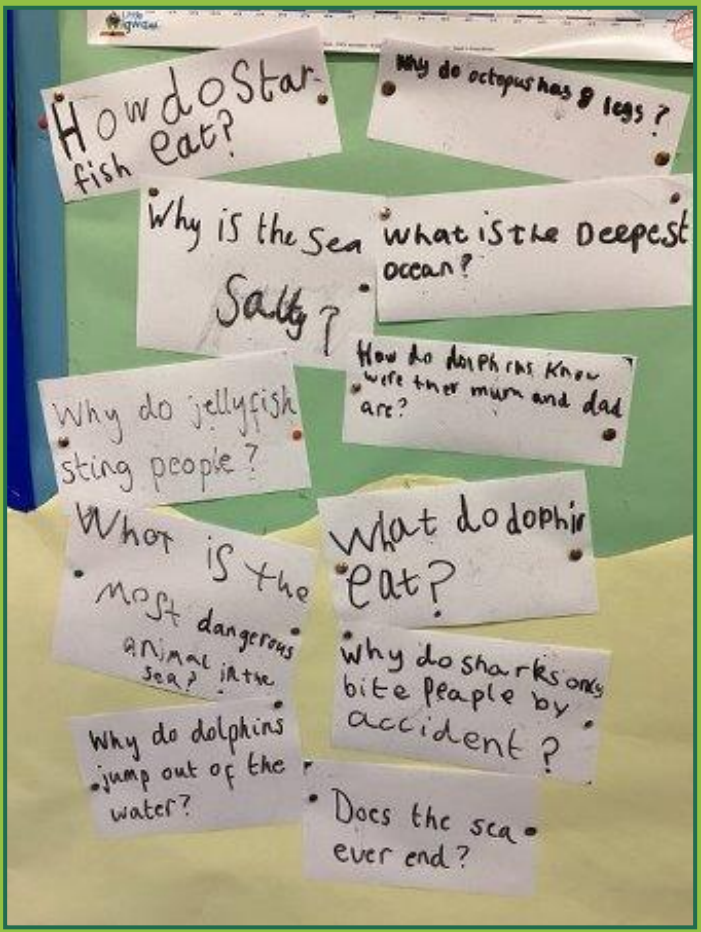 Little
How do Star-
fish eat?
Why do octopus has 8 legs?
Why is the sea
Salty?
What is the Deepest
ocean?
How do dolphins know
were ther mum and dad
are?
Why do jellyfish
sting people?
What is the
most dangerous
animal in the
sea?
What do dophin
eat?
Why do sharks only
bite peaple by
accident?
Why do dolphins
jump out of the
water?
Does the sea
ever end?